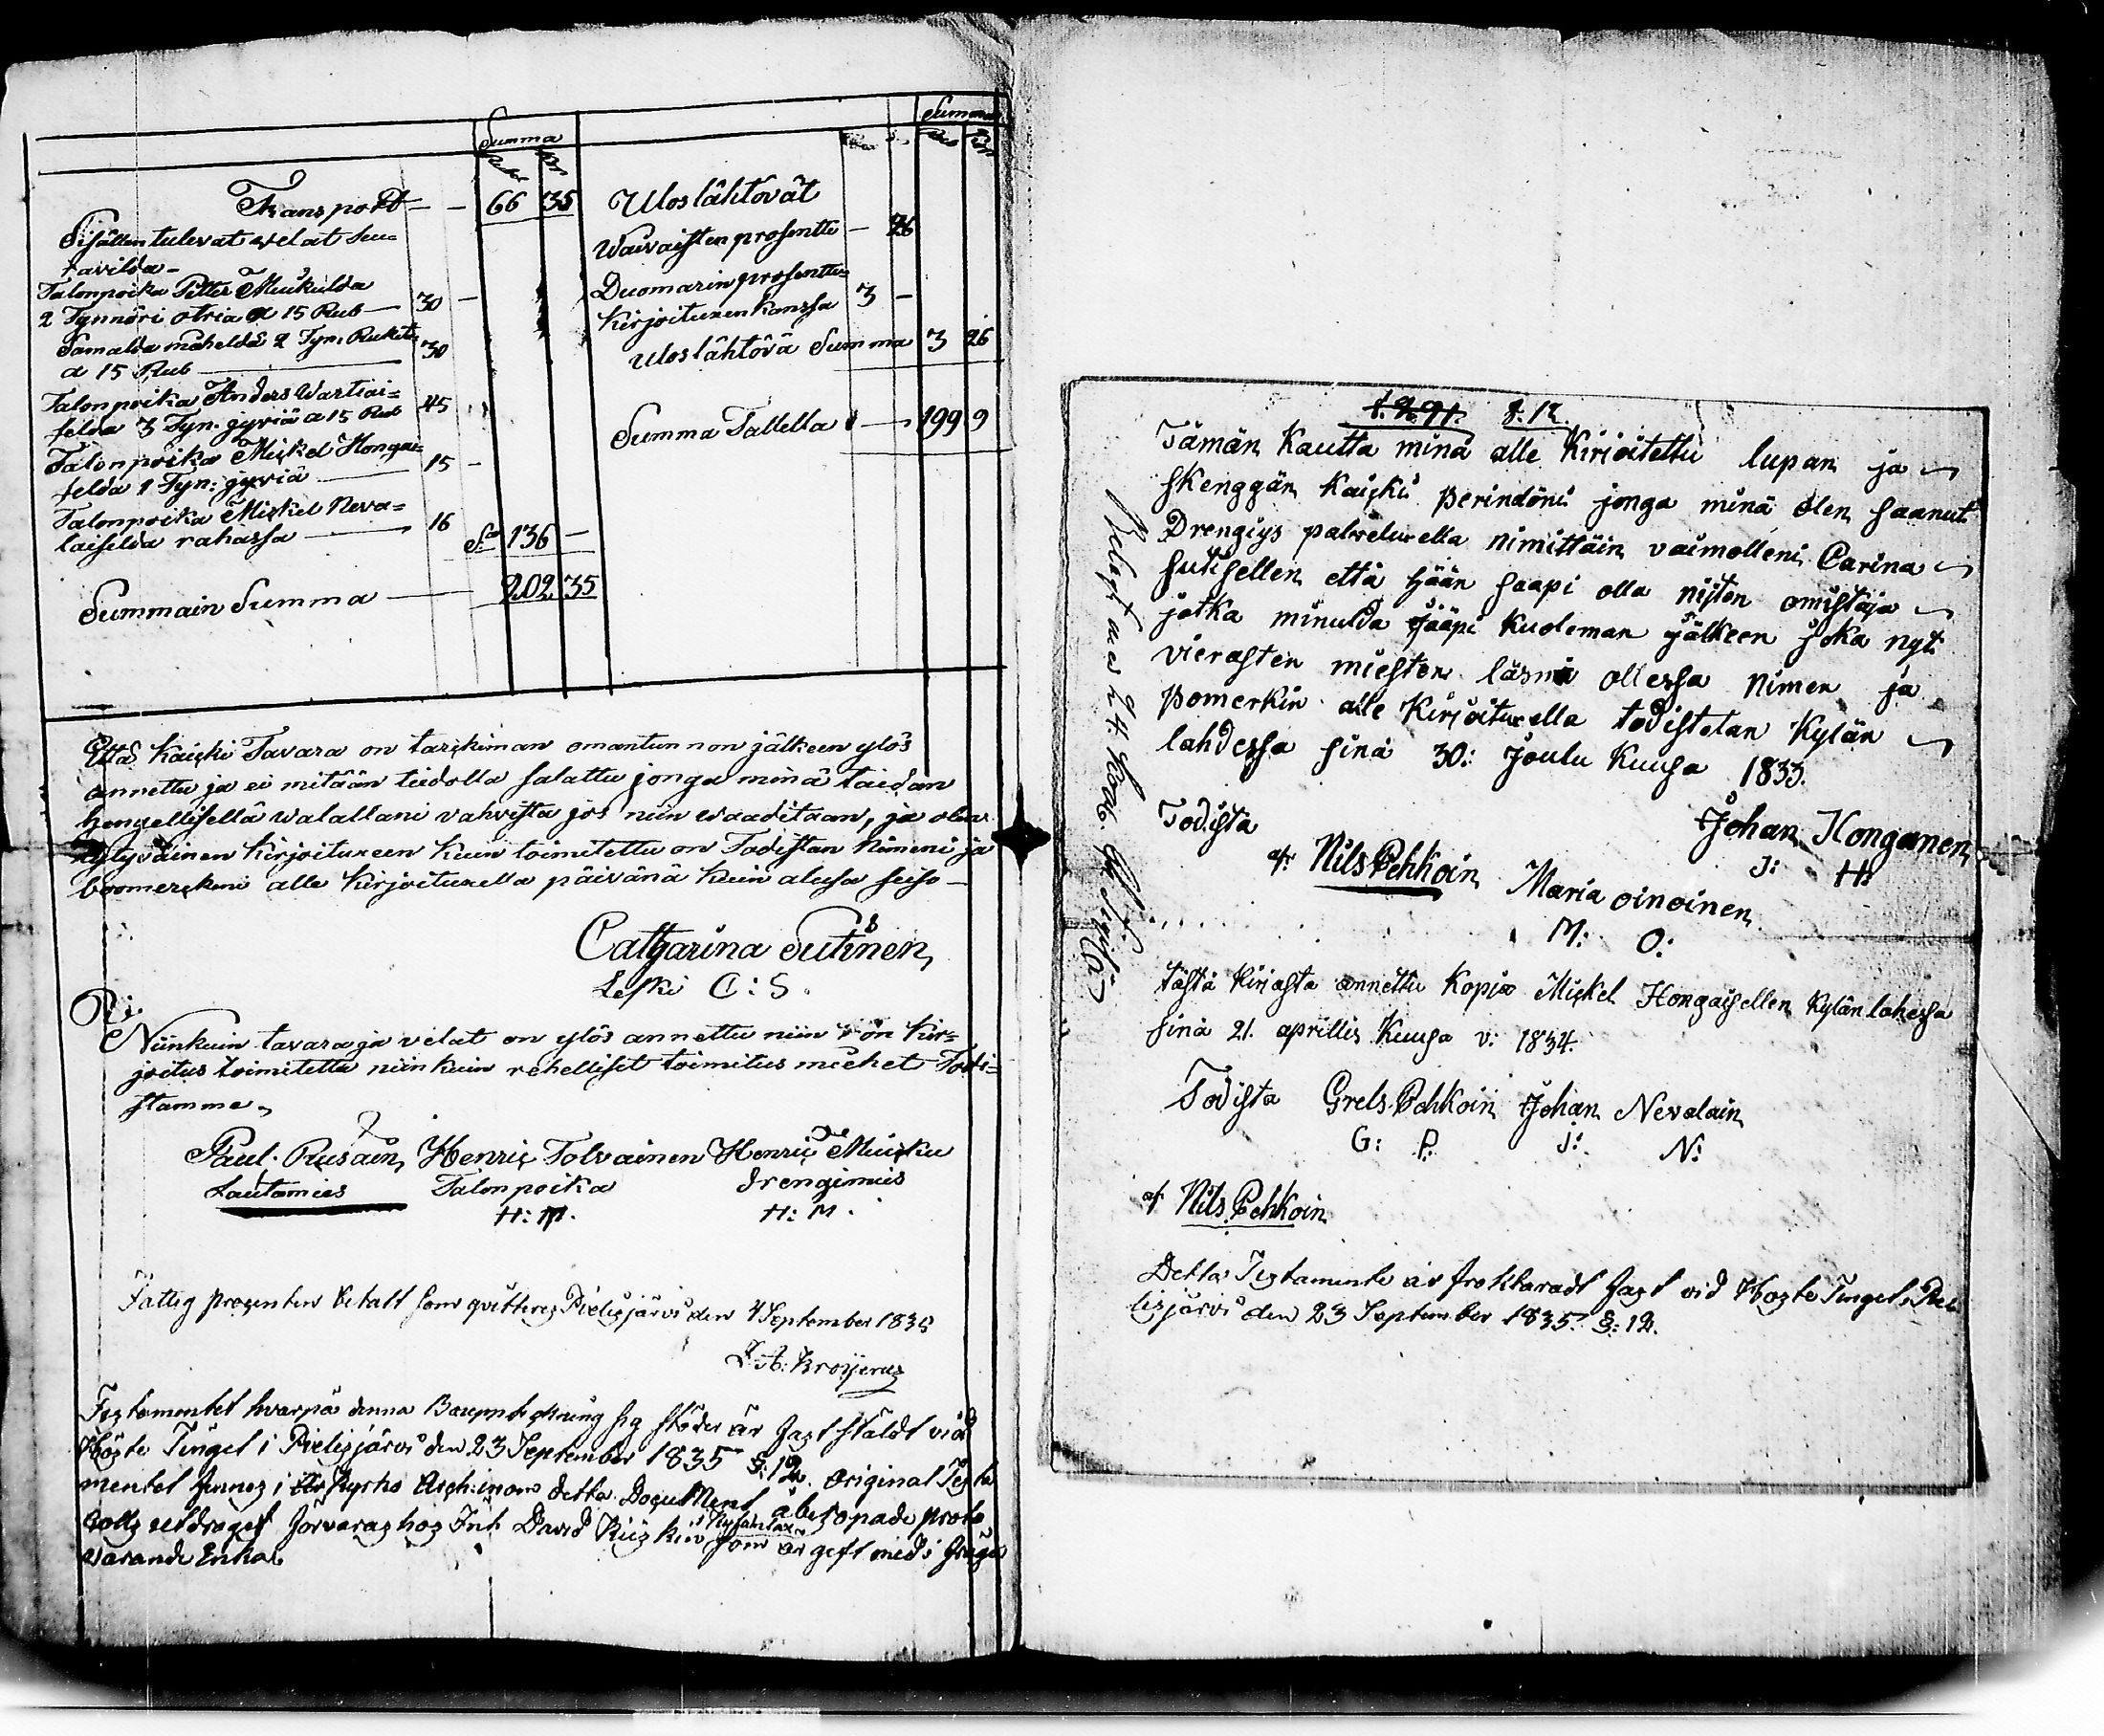 Summa
Transport — — 66 35
Sisällen tulevat velat seu=
ravilda –
Talonpoika Petter Muikulda
2 Tynnöri otria a 15 Rub — 30 –
Samalda mieheldä 2 Tyn. Rukita
a 15 Rub — 30
Talonpoika Anders Wartiai=
selda 3 Tyn. jyviä a 15 Rub 45
Talonpoika Mickel Hongai=
selda 1 Tyn: jyviä — 15 –
Talonpoika Mickel Neva=
laiselda rahassa — 16 Sa 136 –
Summain Summa — 202 35
Summa
Uloslähtövät
Waivaisten prosentti — 26
Duomarin prosentti=
kirjoituxen kanssa 3 –
Uloslähtövä Summa 3 26
Summa Tallella — 199 9
Että kaicki Tavara on tarckiman omantunnon jälkeen ylös
annettu ja ei mitään tiedolla salattu jonga minä taidan
hengellisellä walallani vahvista jos niin waaditaan, ja olen
tytyväinen kirjoituxeen kuin toimitettu on Todistan Nimeni ja
boomerckini alle kirjoituxella päivänä kuin alusa seiso –
Catharina Sutinen
Leski C: S.
Niinkuin tavara ja velat on ylös annettu niin on kir=
joitus toimitettu niinkuin rehelliset toimitus miehet Todi=
stamme
Paul. Rusäin, Henric Tolvainen Henric Muicku
Lautamies Talonpoika drengimies
H: M. H: M.
Fattig procenten betalt som qvitteras Pielisjärvi den 4 September 1835
Testamentet hvarpå denna Bouppteckning sig stöder är fastställdt vid
Höste Tinget i Pielisjärvi den 23 September 1835 §: 12. Original Testa
mentet finnes i Kyrko Arch: inom detta Document åberopade proto
colls utdraget förvaras hos Inh. David Kiiskin som är gift med i fråga
varande Enka.
§. 12.
Tämän kautta minä alle kirjoitettu lupan ja
skenggän kaicki perindöni jonga minä olen saanut
Drengiys palveluxella nimittäin vaimolleni Carina
sutisellen että hään saapi olla nijten omistaja
jotka minulda jääpi kuoleman jälkeen joka nyt
vierasten miesten läsnä ollessa nimen ja
pomerkin alle kirjoituxella todistetan kylän
lahdessa sinä 30: joulu kuusa 1833.
Johan Honganen
J: H:
Todista
af: Nils Pehkoin Maria oinoinen
M: O:
tästä kirjasta annettu kopia Mickel Hongaisellen kylän lahessa
sinä 21. aprillis kuusa v: 1834.
Todista Grels Pehkoin Johan Nevalain
G: P: J: N:
af Nils Pehkoin
Detta Testamente är förklaradt fast vid Höste Tinget i Pie
lisjärvi den 23 September 1835. §: 12.